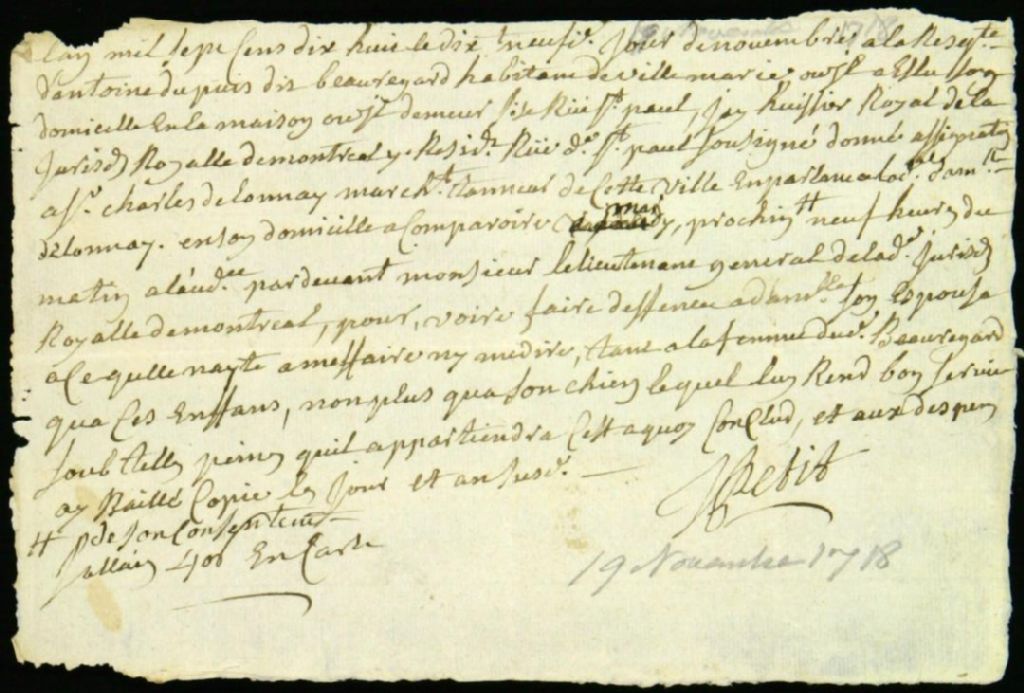 19 Novembre 1718
Lan mil Sept Cens dix huit le dix neufie. Jour de novembre, a la Resqte.
dantoine dupuis dit beauregard habitant de ville marie ou Il a Eslu son
domicille En la maison ou Il demeur size Rüe St. paul, Jay huissier Royal de la
Jurisdn Royalle de montreal y Residt. Rüe d. St. paul sousigné donné assignaõn
a Sr. charles delonnay marcht. tanneur de Cette ville En parlant a lad. dam.lle
delonnay. en son domicille a Comparoire mardy, prochin # neuf heures du
matin a laudce. pardevant monsieur le lieutenant general de lad. Jurisdn
Royalle de montreal, pour, voire faire deffence a damlle. son Espouse
a Ce quelle nayte a meffaire ny medire, tant a la femme dud. Beauregard
qua Ces Enffans, non plus qua son chien lequel luy Rend bon service
soub telles peines quil appartiendra Cest a quoy Conclud, et aux despens
ay Baillé Copie les Jour et an susd.
JPetit
# de son Consentemt
Sallaire 40s En Carte
19 Novembre 1718